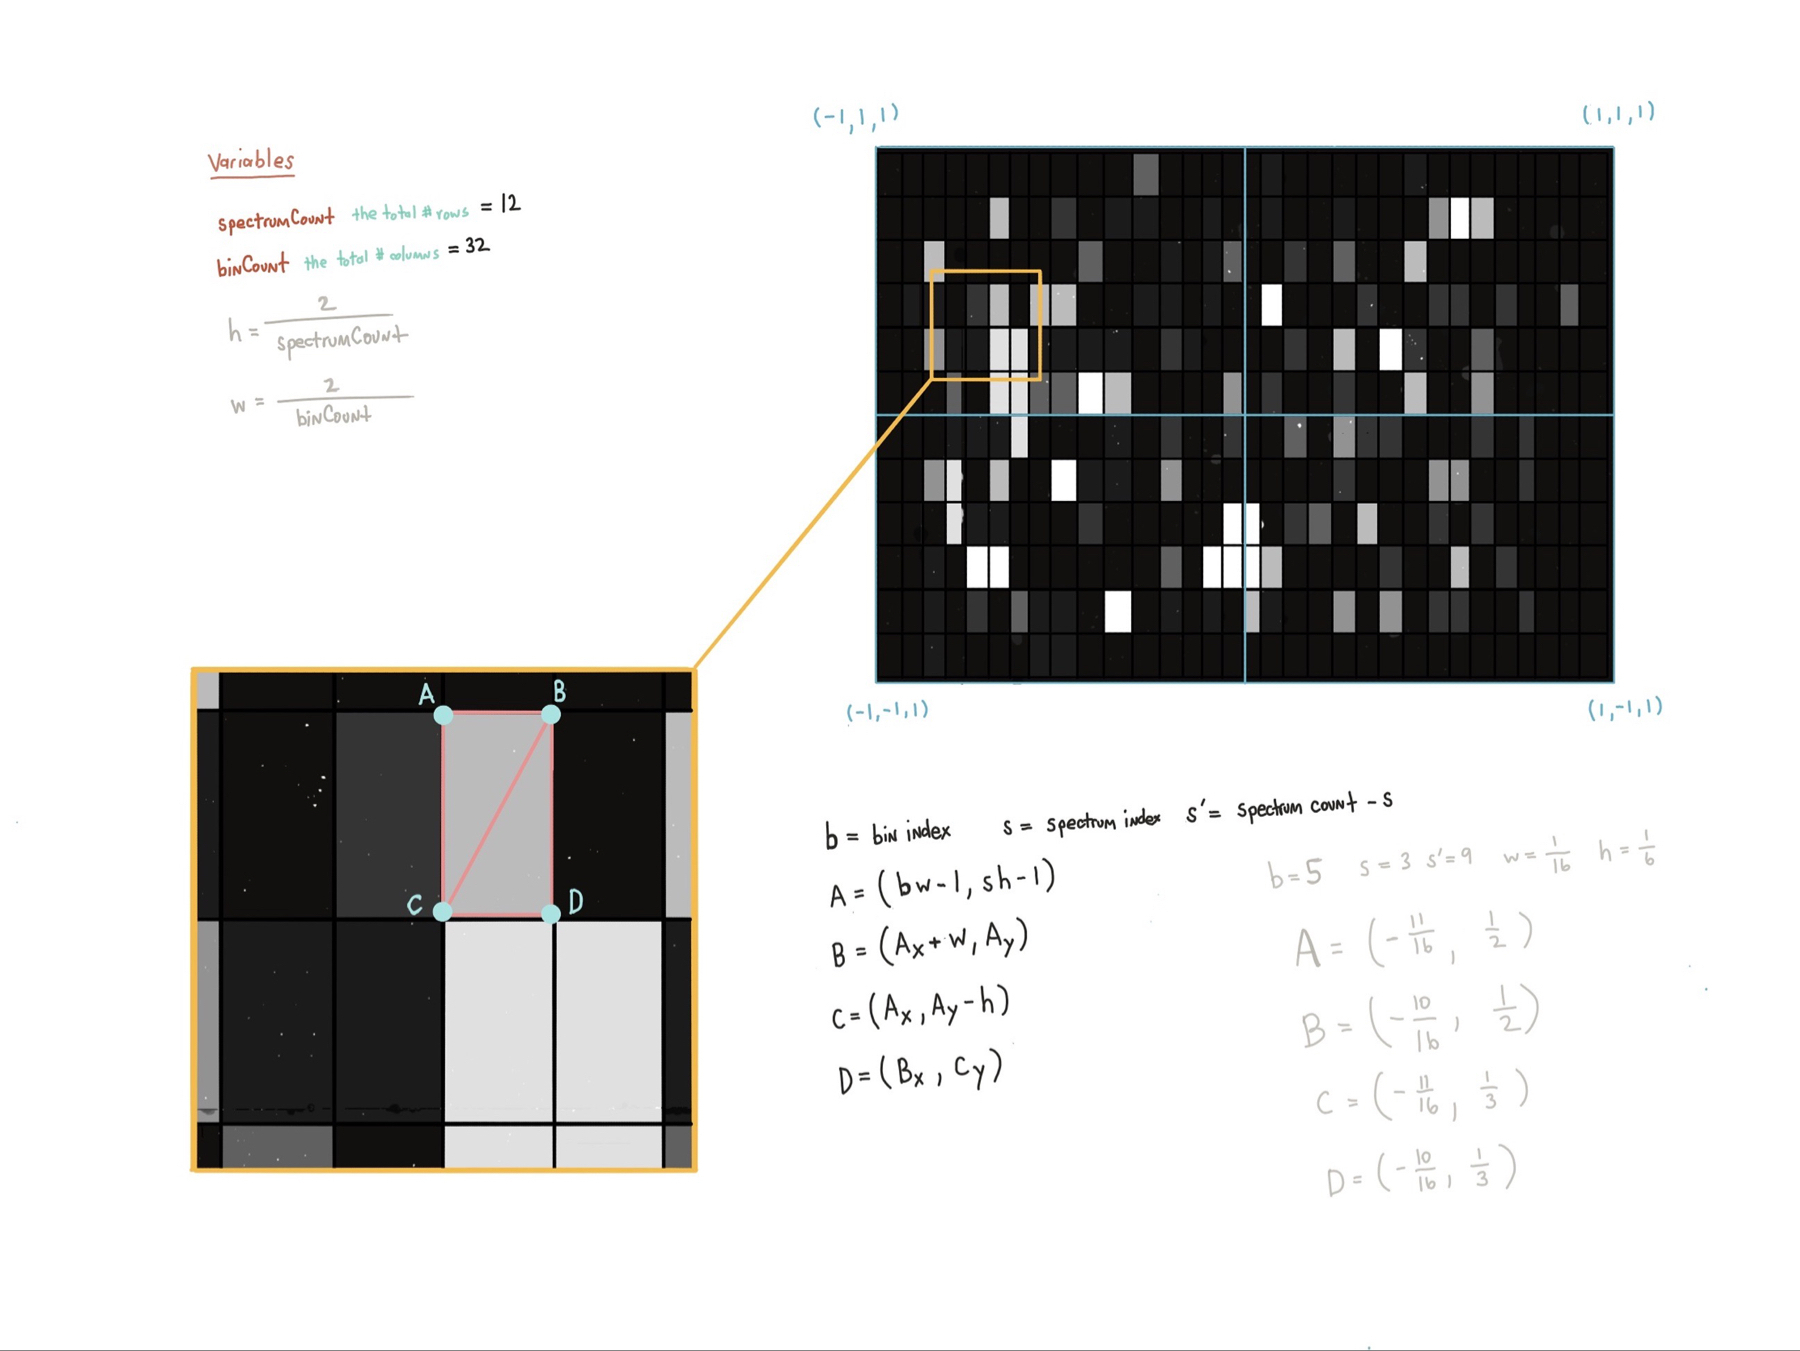 Variables
spectrumCount the total # rows = 12
binCount the total # columns = 32
h = 2 / spectrumCount
w = 2 / binCount
(-1,1,1)
(1,1,1)
(-1,-1,1)
(1,-1,1)
A
B
C
D
b = bin index s = spectrum index s' = spectrum count - s
A = (bw-1, sh-1)
B = (Ax+w, Ay)
C = (Ax, Ay-h)
D = (Bx, Cy)
b=5 s=3 s'=9 w=1/16 h=1/6
A = (-11/16, 1/2)
B = (-10/16, 1/2)
C = (-11/16, 1/3)
D = (-10/16, 1/3)